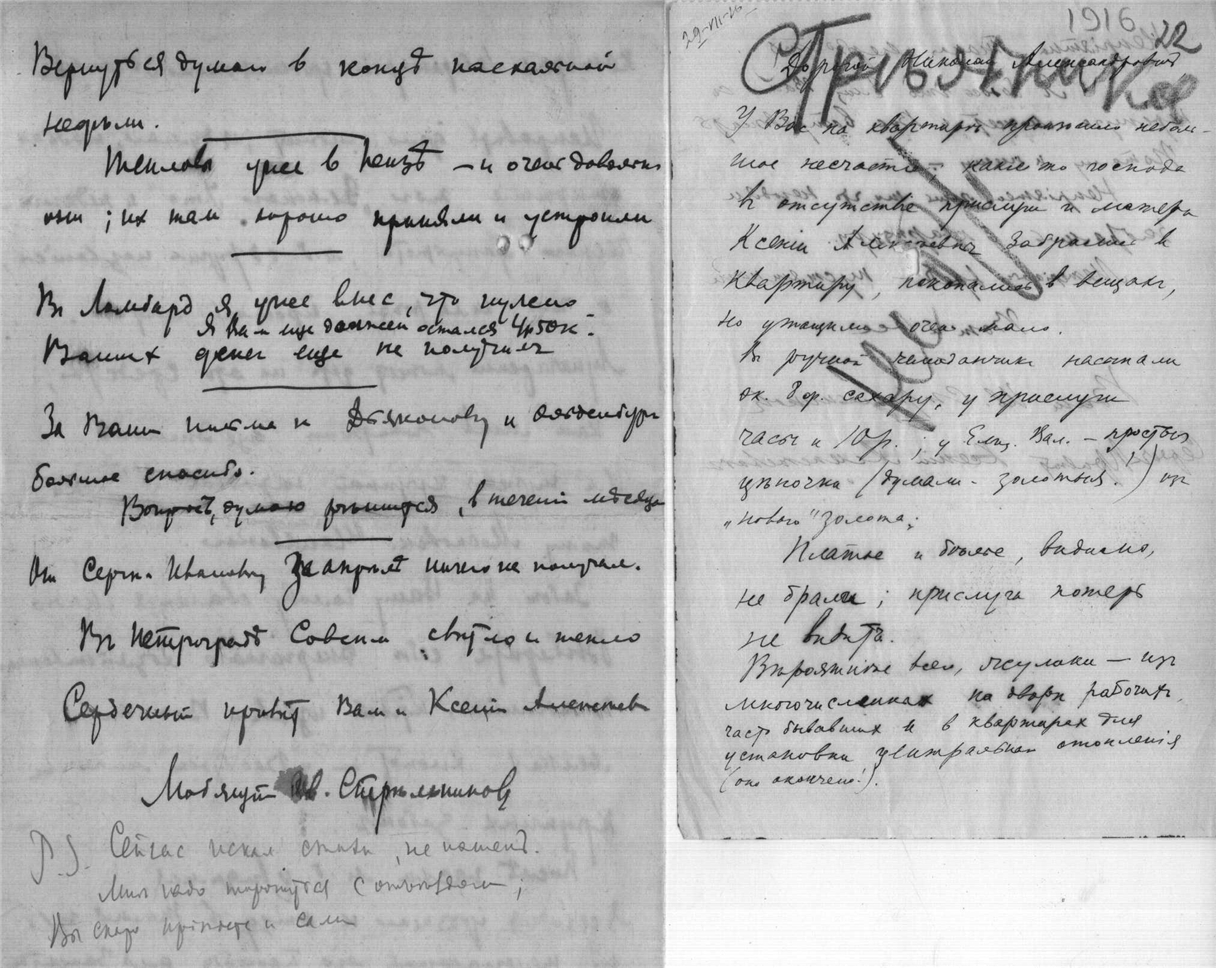 Вернуться думаю в конце пасхальной
недели.
Тепловы уже в Пензѣ – и очень довольны
они ; их там хорошо приняли и устроили
Въ Ломбард я уже внес, что нужно
Я Вам еще должен остался 4р 50к.
Ваших денег еще не получилъ
За Ваши письма к Дьяконову и Ольденбургу
большое спасибо.
Вопросъ, думаю рѣшится, в теченіи мѣсяца
От Серги. Ивановичу За апрѣль ничего не получал.
Въ Петроградѣ Совсем свѣтло и тепло
Сердечный привѣт Вам и Ксеніи Алексѣев
Любящій Ив. Стрѣльников
P.S. Сейчас искал , не нашел.
Мнѣ надо торопиться с отъѣздом ;
Вы скоро пріѣдете и сами
29-VII-16 1916
22
Стрельников
Дорогой Николай Александрович
У Вас на квартирѣ произошло неболь-
шое несчастье; какіе то господа
въ отсутствіе прислуги и матери
Ксеніи Алексѣевны забрались в
квартиру, покопались в вещах,
но утащили очень мало.
Въ ручной чемоданчик насыпали
ок. 8 ф. сахару, у прислуги
часы и 10 р.; у Елиз. Вал. – простую
цѣпочку (думали – золотая!) из
„новаго" золота;
Платье и бѣлье, видимо,
не брали; прислуга потерь
не видитъ.
Вѣроятнѣе всего, жулики – из
многочисленных на дворѣ рабочих,
часто бывавших и в квартирах для
установки центральнаго отопленія
(оно окончено!).